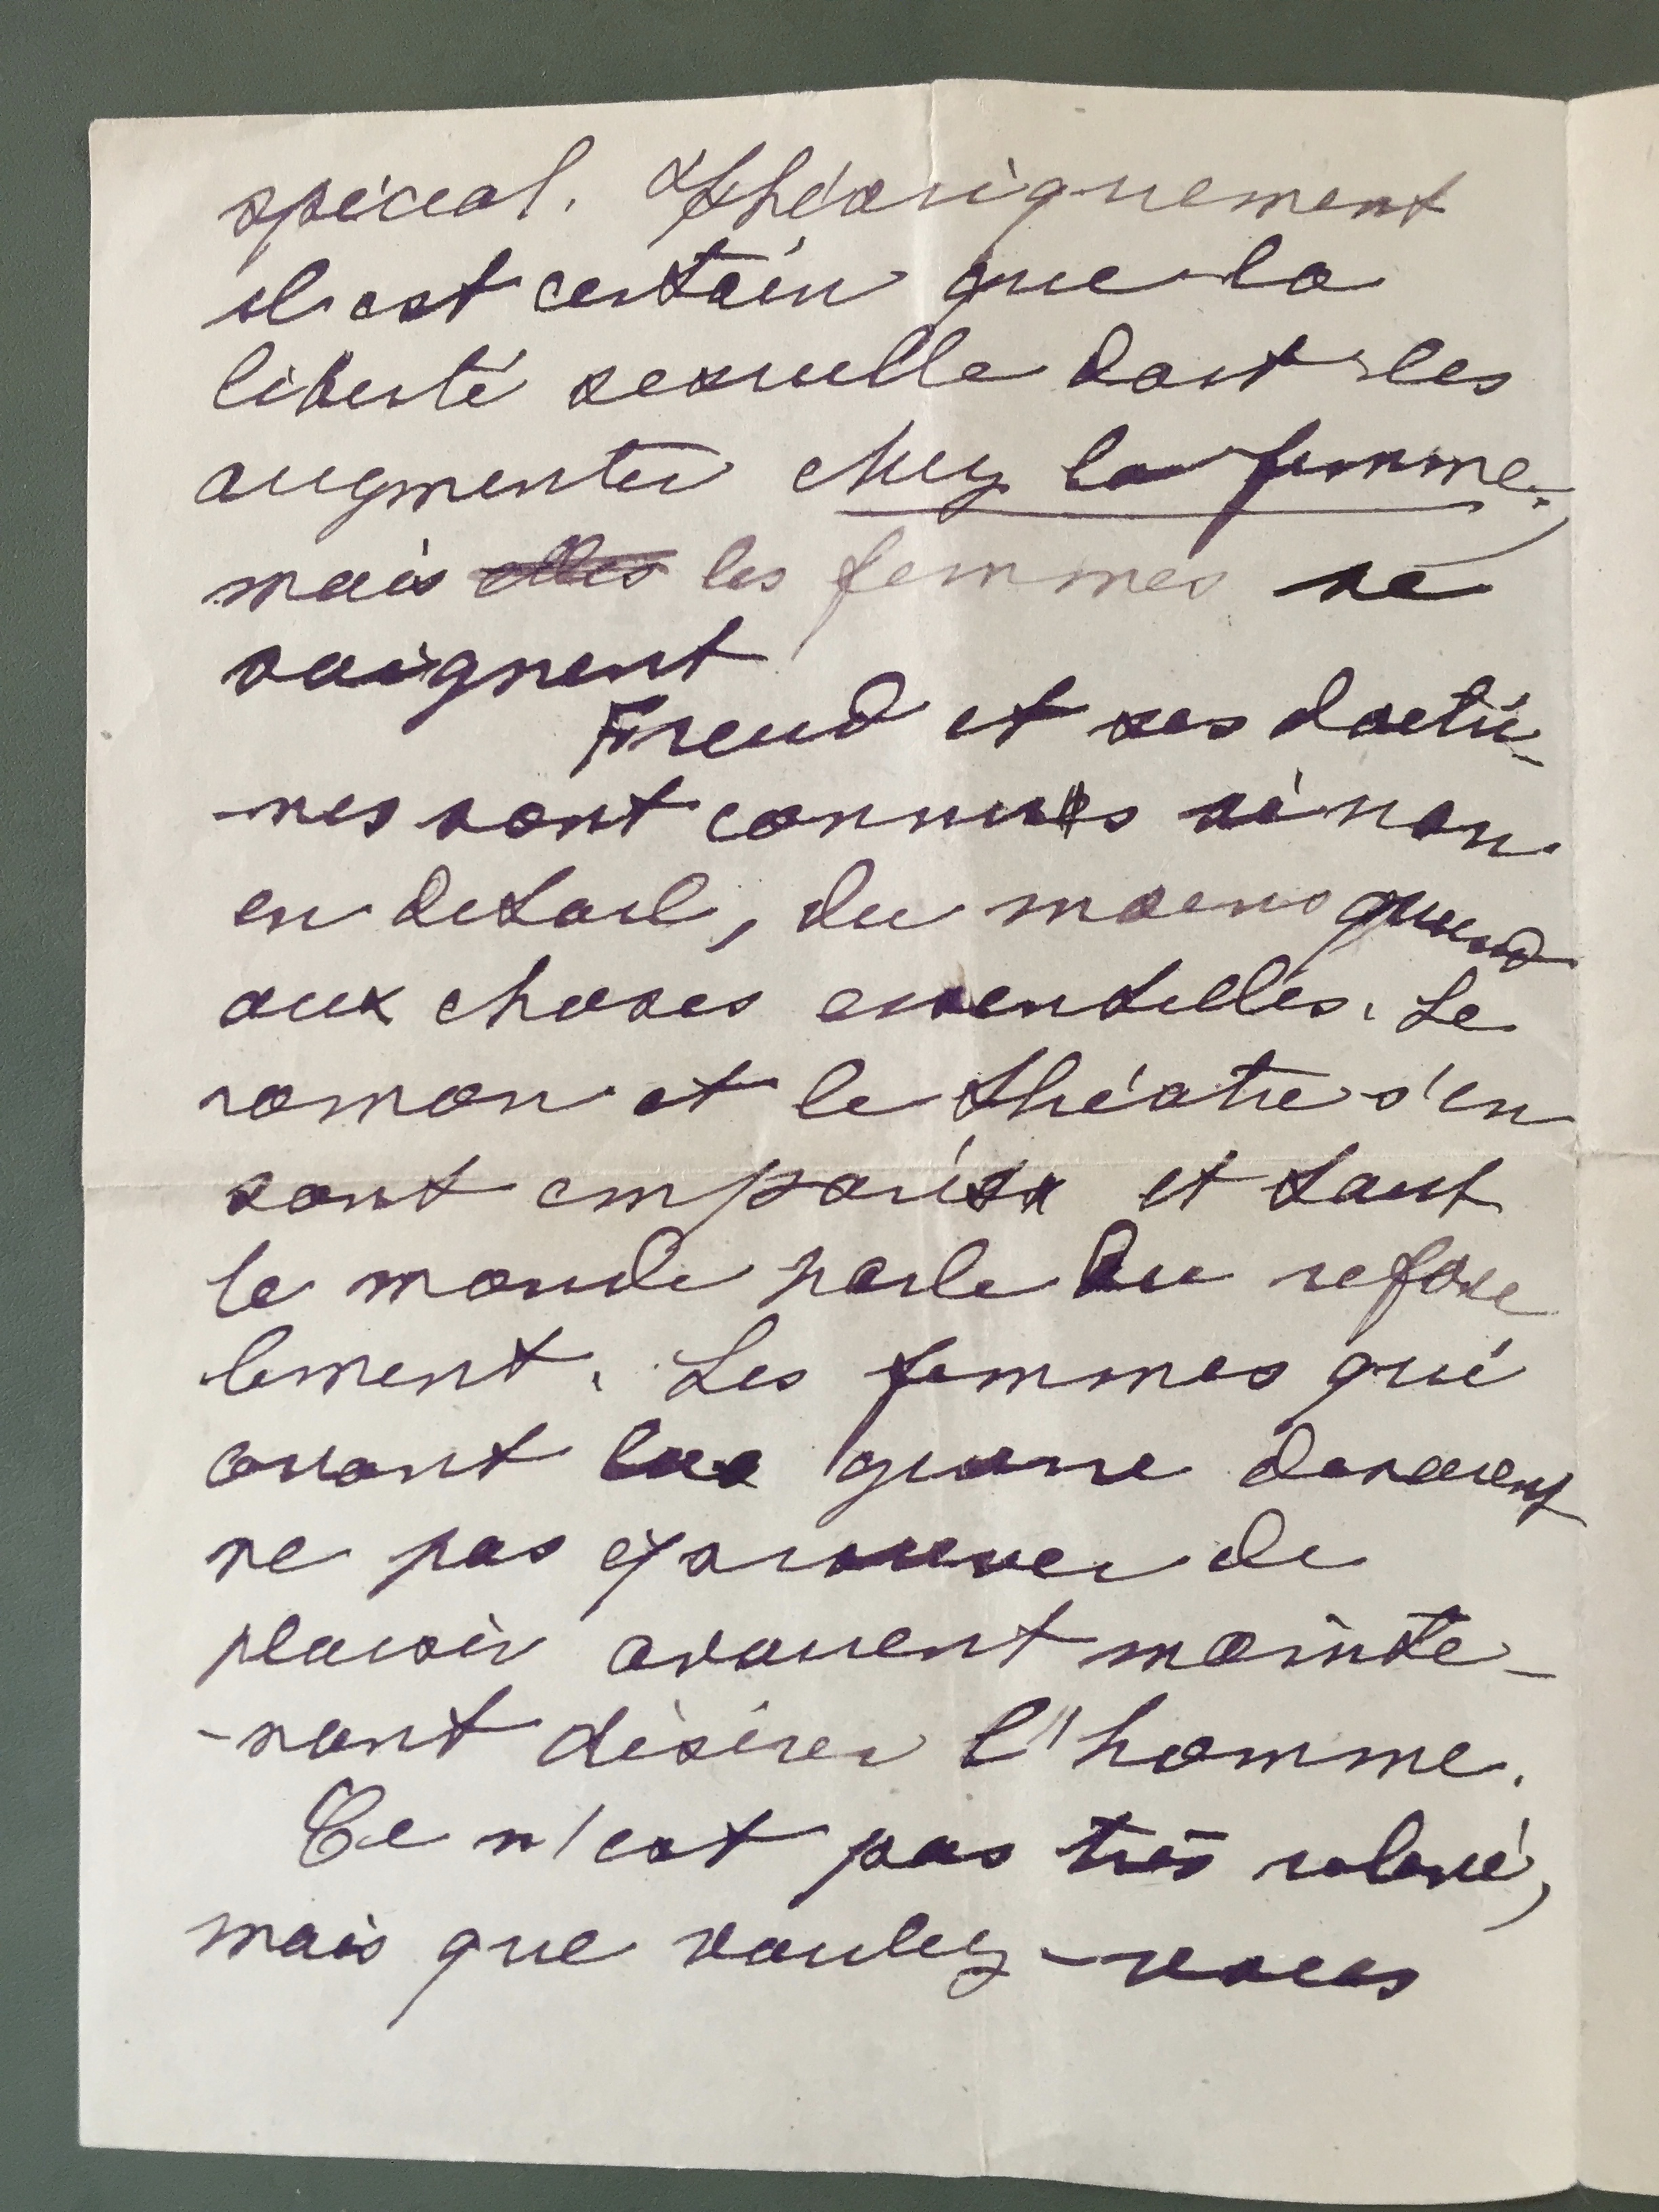 spécial. Théoriquement
il est certain que la
liberté sexuelle doit les
augmenter chez la femme,
mais elles les femmes se
soignent
Freud et ses doctri-
-nes sont connues sinon
en detail, du moins quand
aux choses essentielles. Le
roman et le théatre s'en
sont emparés et tout
le monde parle du refou
lement. Les femmes qui
avant la guerre disaient
ne pas éprouver de
plaisir avouent mainte-
-nant désirer l'homme.
Ce n'est pas très relevé,
mais que voulez-vous